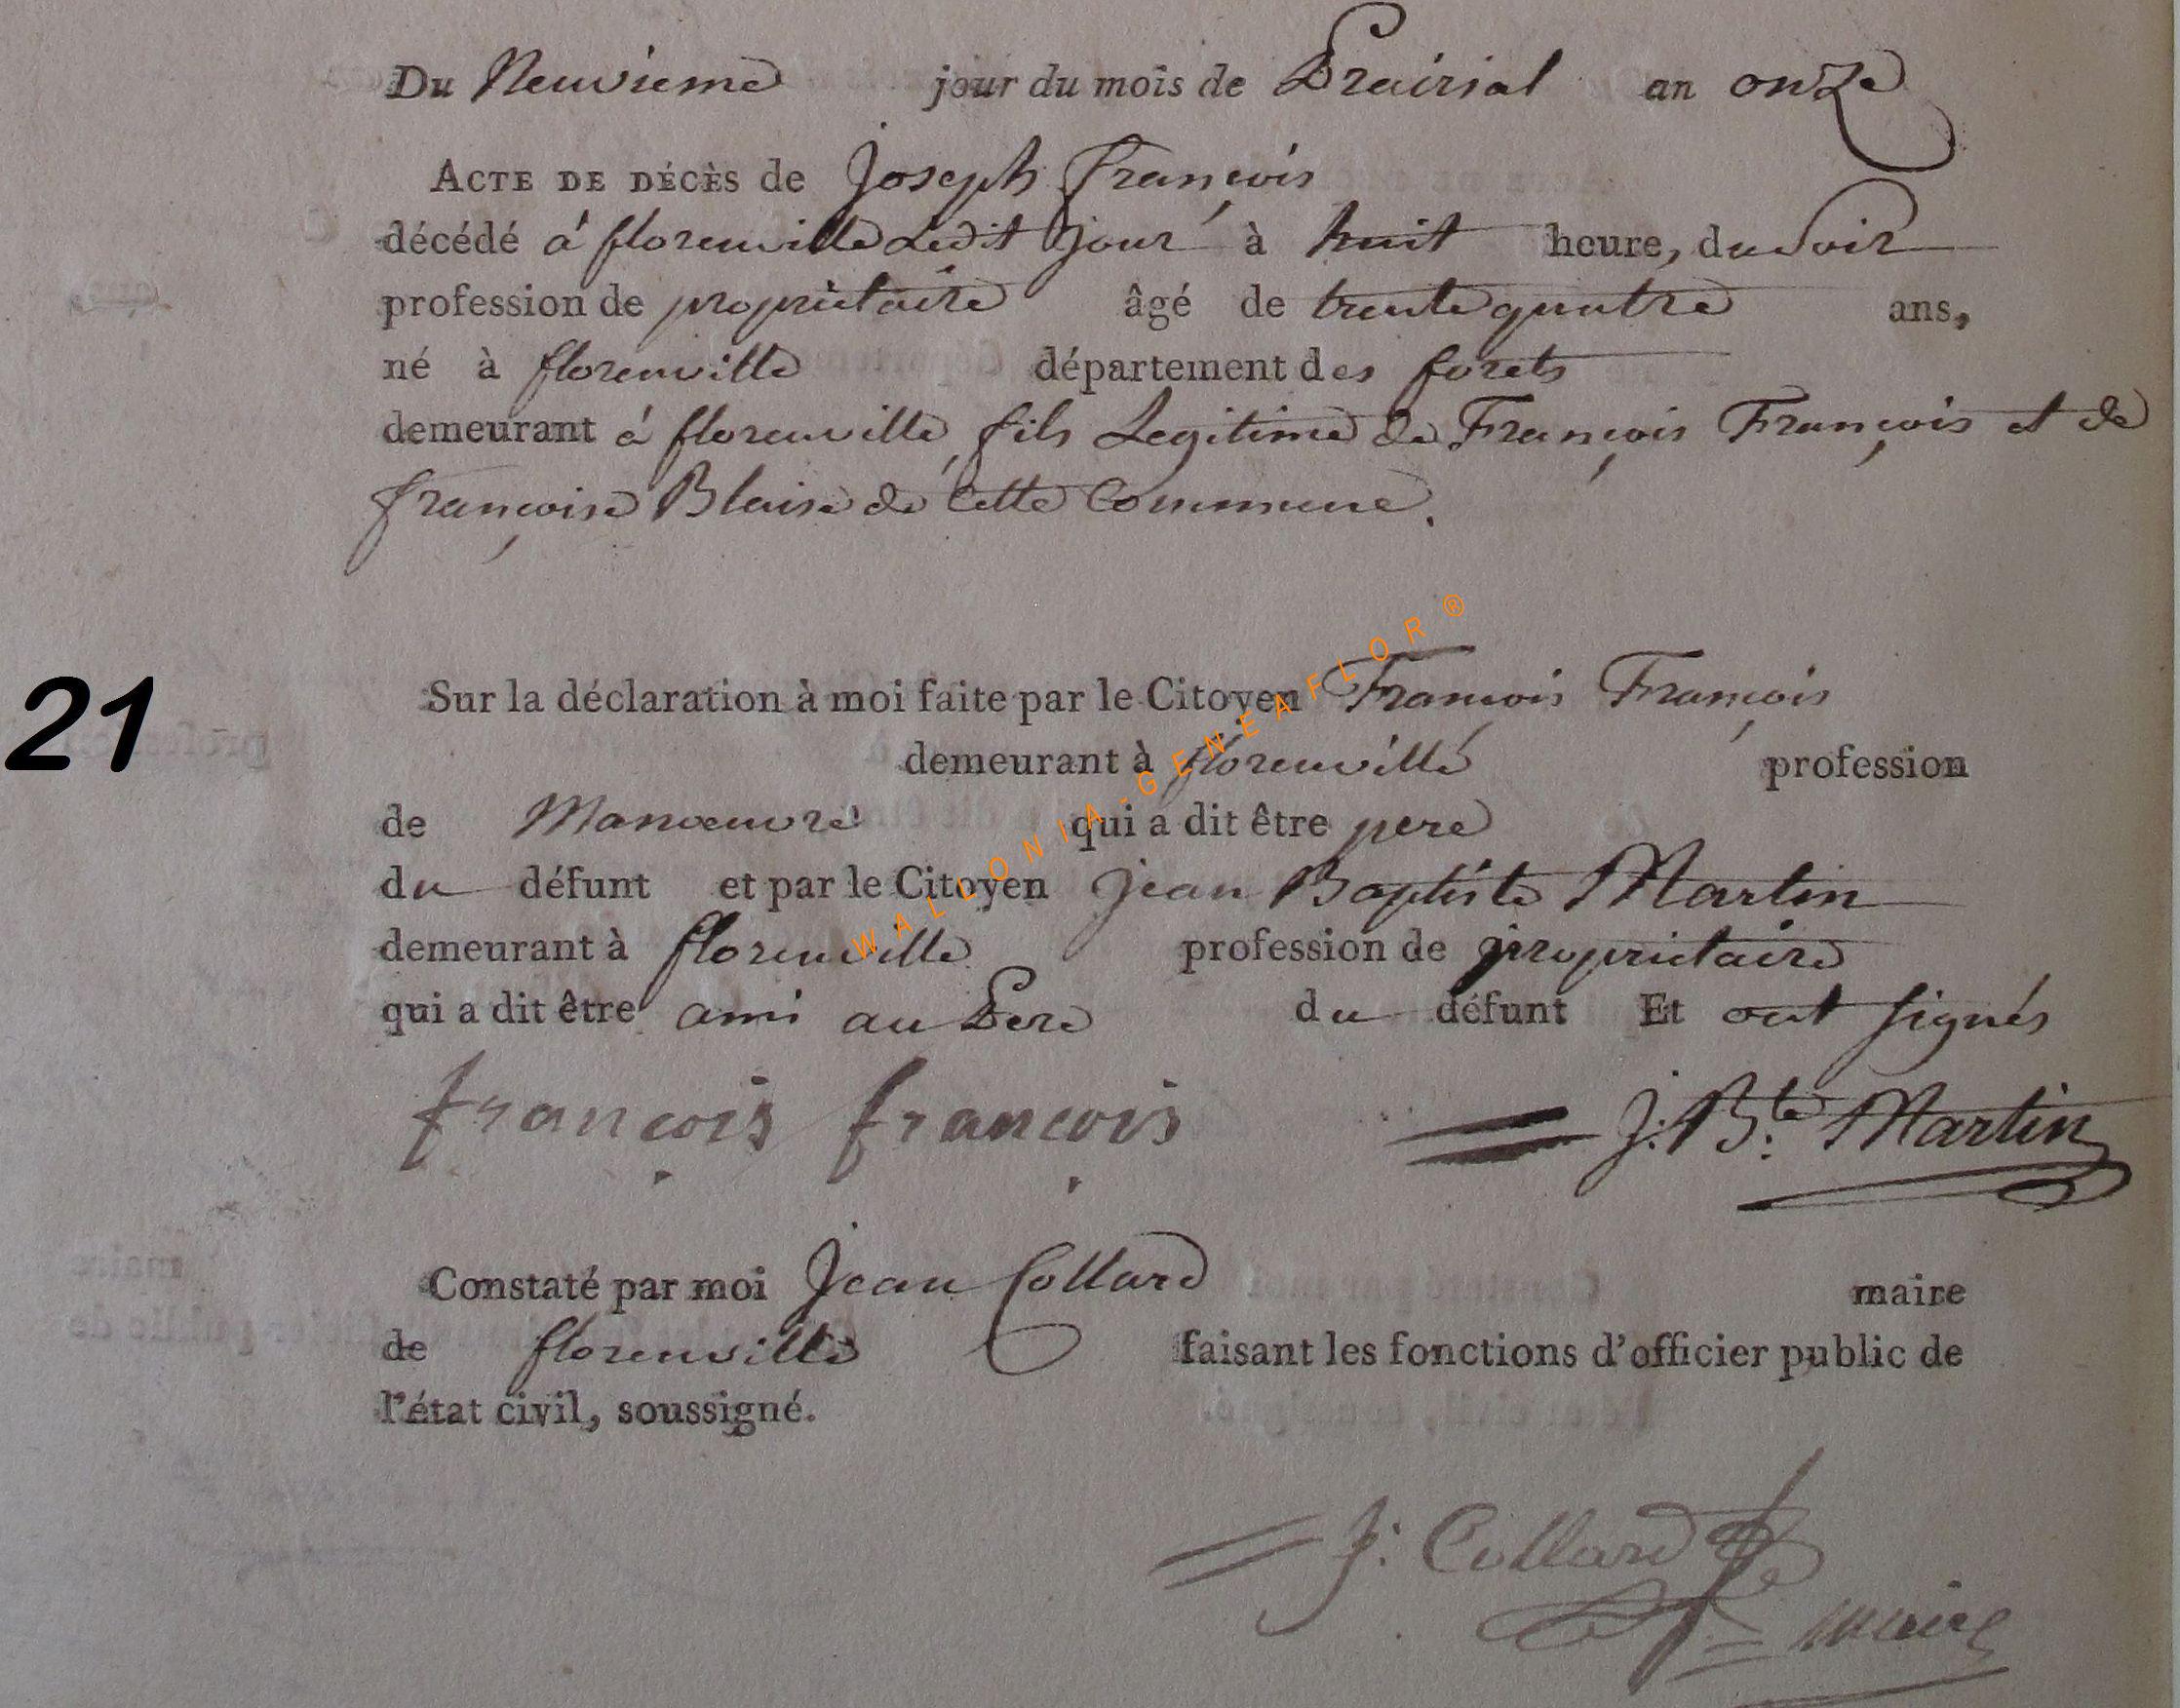 Du Neuvieme jour du mois de Prairial an onze
ACTE DE DÉCÈS de Joseph François
décédé á florenville Ledit jour à huit heure, du Soir
profession de proprietaire âgé de trente quatre ans,
né à florenville département des forets
demeurant á florenville, fils Legitime de François François et de
françoise Blaise de Cette Commune.
WALLONIA-GENEAFLOR®
21
Sur la déclaration à moi faite par le Citoyen François François
demeurant à florenville profession
de Manoeuvre qui a dit être pere
du défunt et par le Citoyen Jean Baptiste Martin
demeurant à florenville profession de proprietaire
qui a dit être ami au Pere du défunt Et ont signés
françois françois J: B:te Martin
Constaté par moi Jean Collard maire
de florenville faisant les fonctions d'officier public de
l'état civil, soussigné.
J: Collard
maire